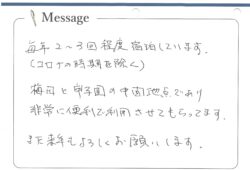 Message
毎年2~3回程度宿泊しています。
(コロナの時期を除く)
梅田と甲子園の中間地点であり
非常に便利で利用させてもらってます。
また来年もよろしくお願いします。